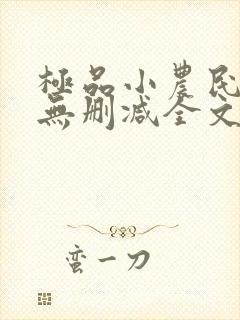 極品小農民
無刪減全文
蛮一刀